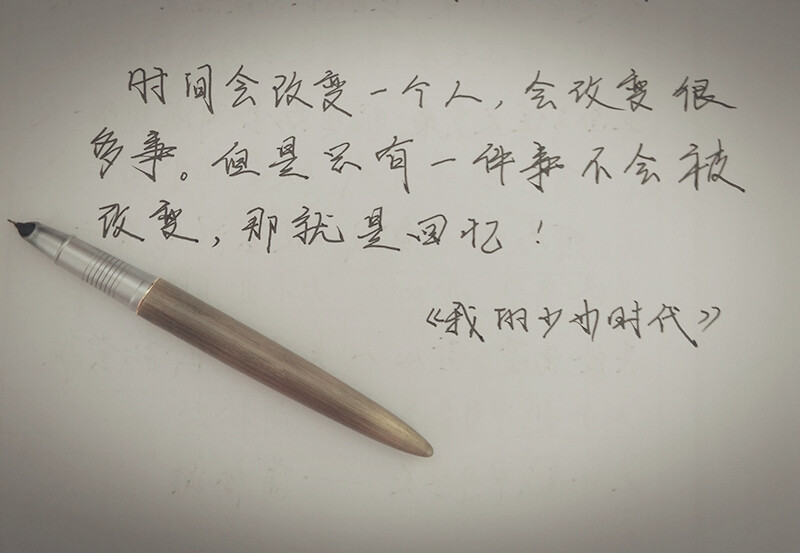 时间会改变一个人，会改变很
多事。但是只有一件事不会被
改变，那就是回忆！
《我的少女时代》